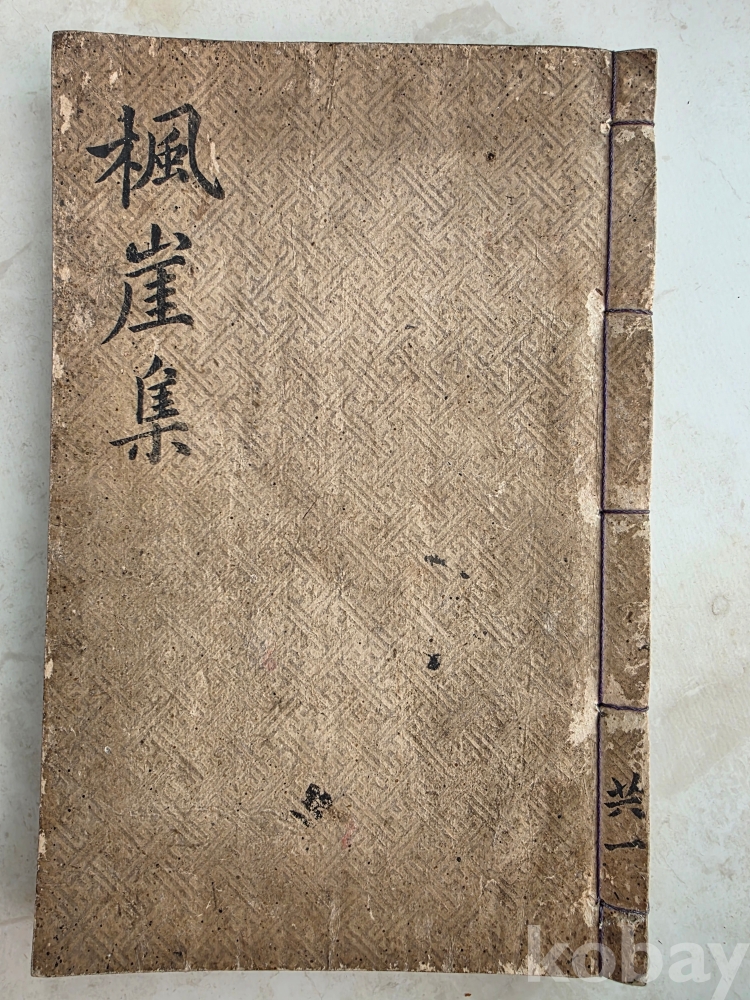 楓崖集
共一
kobay